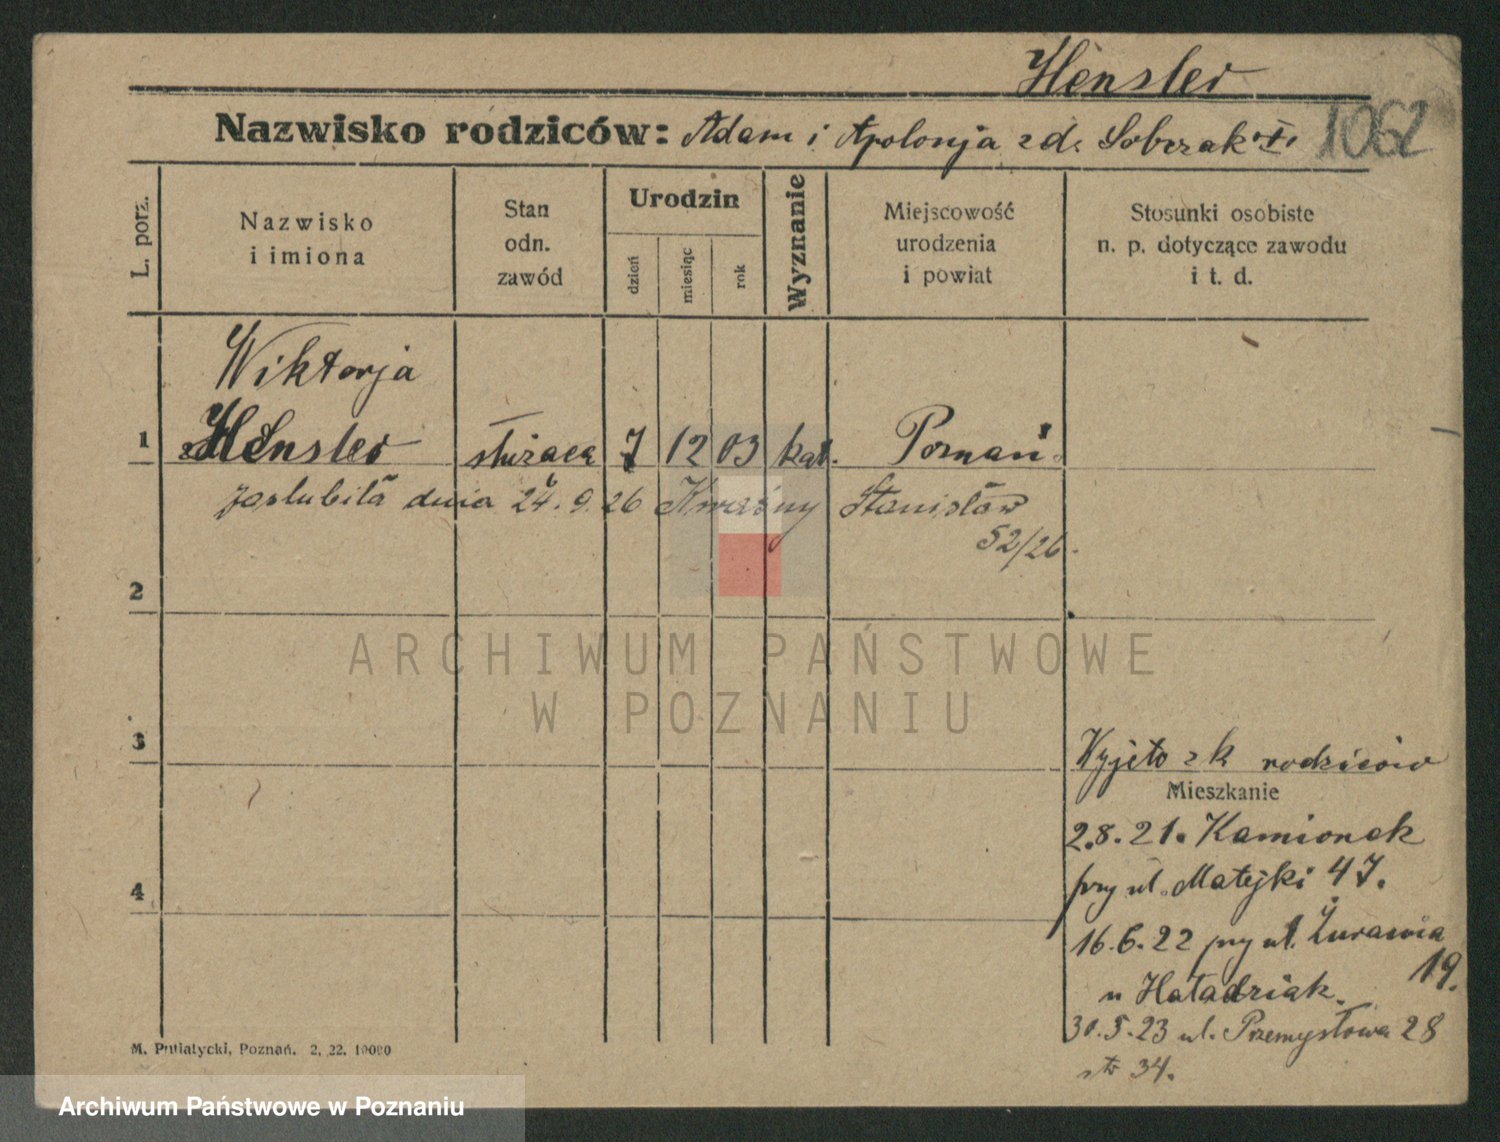 Hensler
Nazwisko rodziców: Adam i Apolonja zd. Sobczak
1062
L. porz.
Nazwisko
i imiona
Stan
odn.
zawód
Urodzin
dzień
miesiąc
rok
Wyznanie
Miejscowość
urodzenia
i powiat
Stosunki osobiste
n. p. dotyczące zawodu
i t. d.
Wiktorja
1 Hensler służąca 7 12 03 kat. Poznań
zaślubiła dnia 24. 9. 26 Kwaśny Stanisław
52/26.
2
ARCHIWUM PAŃSTWOWE
W POZNANIU
3
Wyjęto z k rodziców
Mieszkanie
2.8.21. Kamionek
przy ul. Matejki 47.
4
16.6.22 przy ul. Żurawia
19.
u Hatadziak.
30.5.23 ul. Przemysłowa 28
str 34.
M. Putiatycki, Poznań. 2, 22. 10000
Archiwum Państwowe w Poznaniu